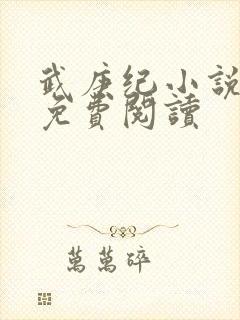 武庚纪小説
免費閱讀
萬萬碎